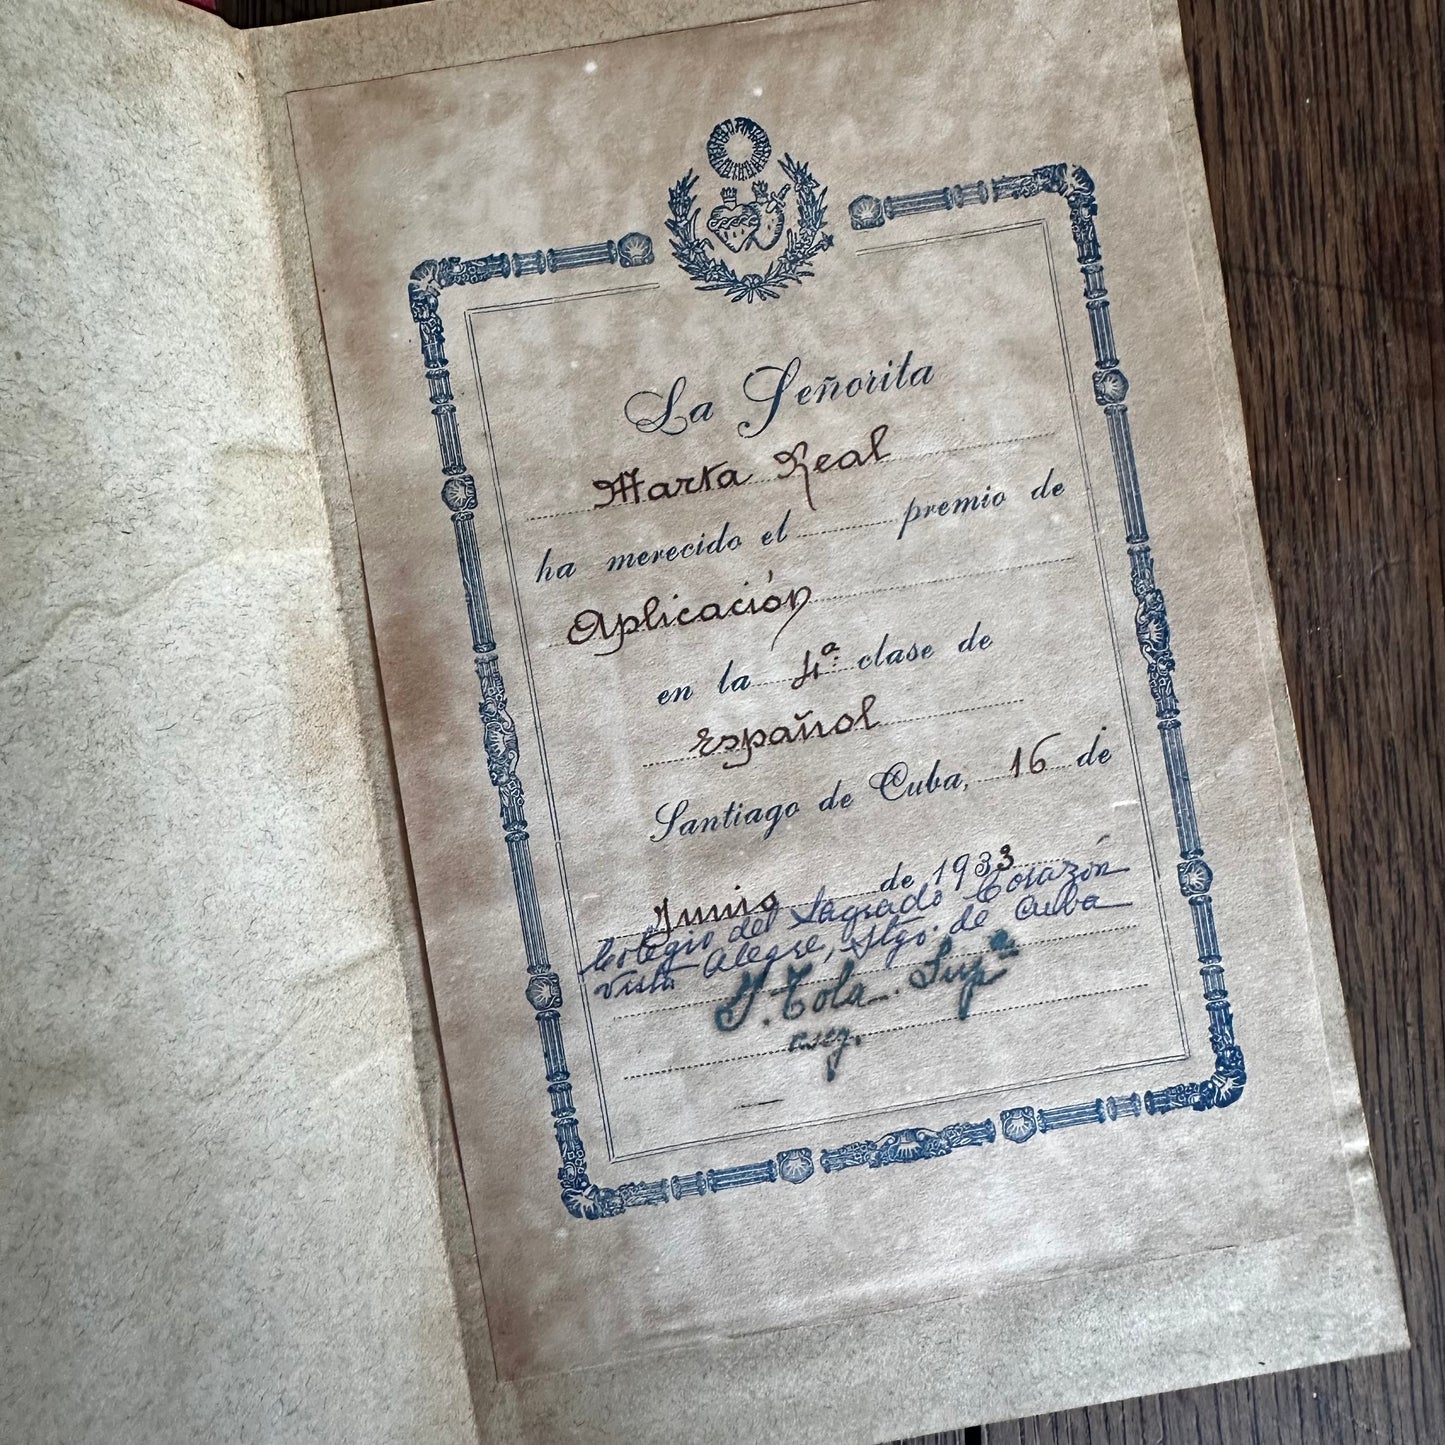 La Señorita
Marta Real
ha merecido el premio de
Aplicación
en la 4ª clase de
Español
Santiago de Cuba, 16 de
Junio de 1933
Colegio del Sagrado Corazón
Vista Alegre, Stgo. de Cuba
Tola. Supª